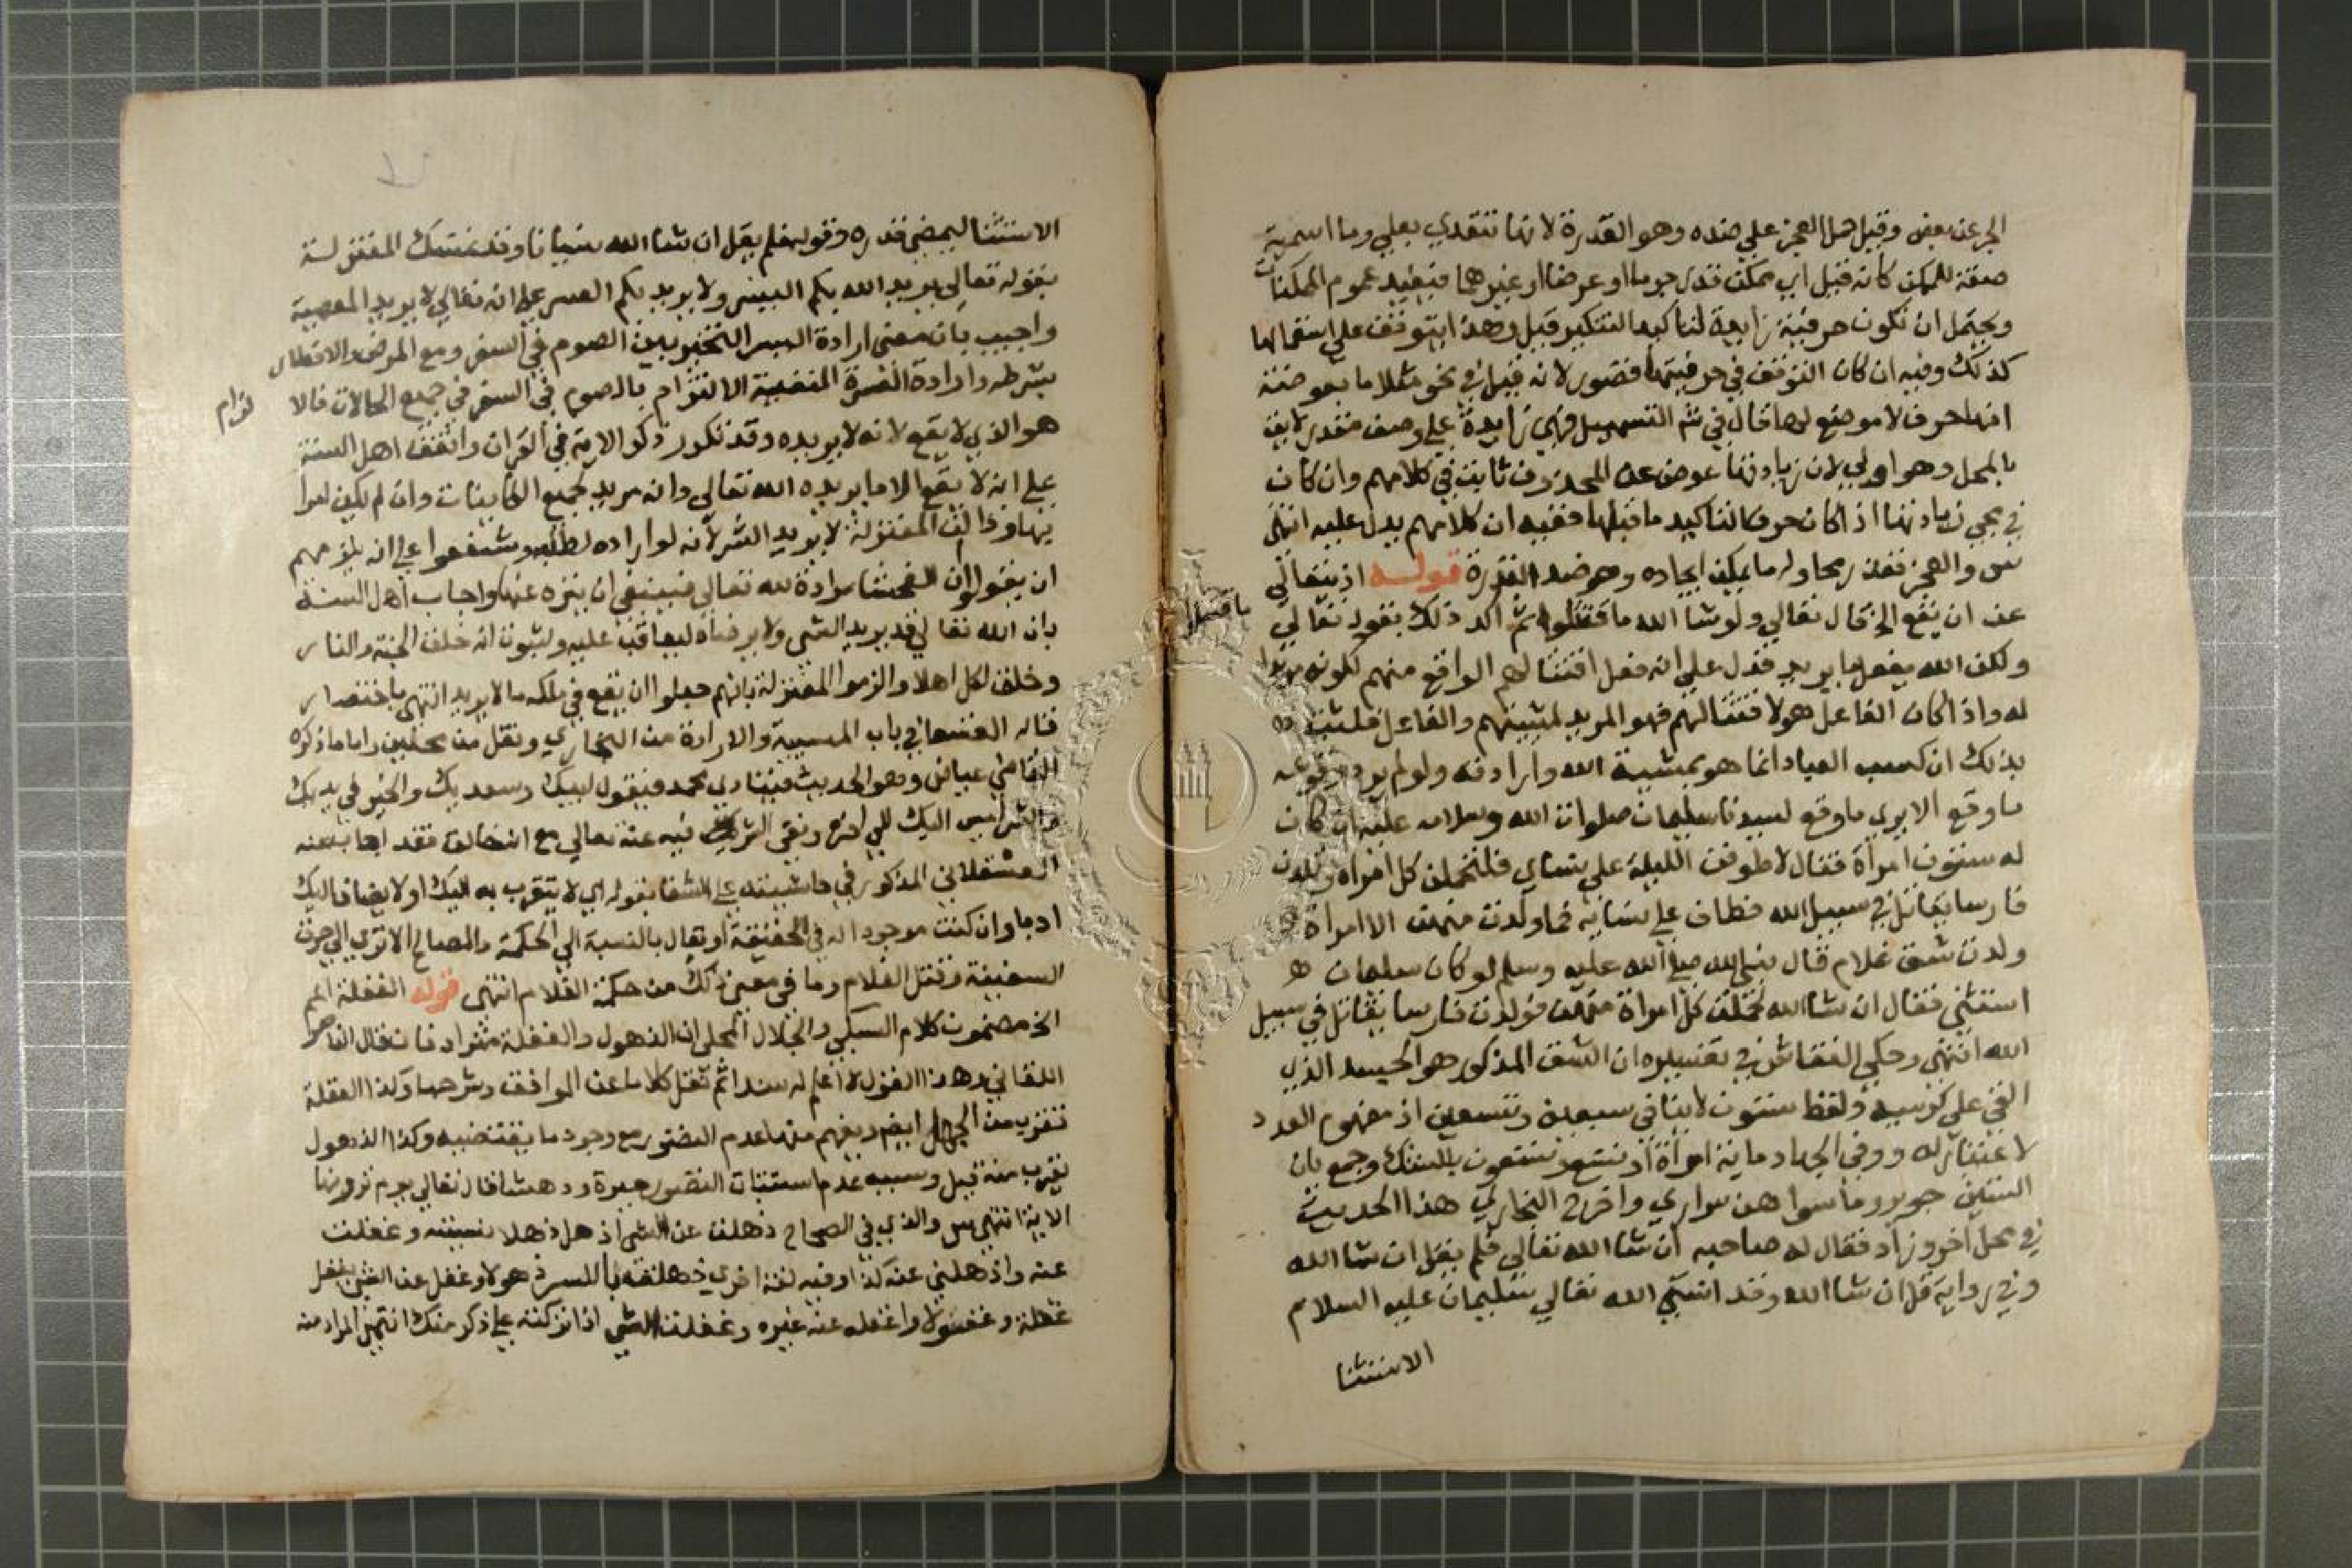 الجر عن بعض وقيل حمل العجز علي ضده وهو القدرة لانها تتعدي بعلي وما اسمية
صفة للممكن كانه قيل اي ممكن قدر جوما او عرضا او غيرهما فيفيد عموم الممكنات
ويحتمل ان تكون حرفية زايدة لتاكيد التنكير قبل وهذا يتوقف علي استعمالها
كذلك وفيه ان كان التوقف في حرفيتها فقصور لانه قيل في نحو مثلا ما بعوضة
انها حرف لا موضع لها قال في شر التسهيل وهي زايدة علي وصف مقدر لايق
بالمحل وهو اولي لان زيادتها عوض عن المحذوف ثابت في كلامهم وان كان
في مجي زيادتها اذا كان حرفا لتاكيد ما قبلها ففيه ان كلامهم يدل عليه انتهي
س والعجز تعذر محاولة ما يمكن ايجاده وهو ضد القدرة قوله اذ يتعالي
عن ان يقع الخ قال تعالي ولو شا الله ما اقتتلوا ثم اكد ذلك بقوله تعالي
ولكن الله يفعل ما يريد فدل علي انه فعل اقتتالهم الواقع منهم لكونه مريدا
له واذا كان الفاعل هو لاقتتالهم فهو المريد لمشيتهم والفاعل فثبت
بذلك ان كسب العباد انما هو بمشية الله وارادته ولو لم يرد وقوعه
ما وقع الا يري ما وقع لسيدنا سليمان صلوات الله وسلامه عليه ان كان
له ستون امراة فقال لاطوفن الليلة علي نساي فلتحملن كل امراة ولتلدن
فارسا يقاتل في سبيل الله فطاف علي نسايه فما ولدت منهن الا امراة
ولدت شق غلام قال نبي الله صلي الله عليه وسلم لو كان سليمان
استثني فقال ان شا الله لحملت كل امراة منهن فولدت فارسا يقاتل في سبيل
الله انتهي وحكي النقاش في تفسيره ان الشق المذكور هو الجسد الذي
القي علي كرسيه ولفظ ستون لا ينافي سبعين وتسعين اذ مفهوم العدد
لا اعتبار له ووفي الجهاد ماية امراة او تسع وتسعون بالشك وجمع بان
الستين حراير وما سواهن سراري واخرج البخاري هذا الحديث
في محل اخر وزاد فقال له صاحبه ان شا الله تعالي فلم يقل ان شا الله
وفي رواية قل ان شا الله وقد انسي الله تعالي سليمان عليه السلام
الاستثنا
الاستثنا ليمضي قدره وقوله فلم يقل ان شا الله نسيانا وقد تمسك المعتزلة
بقوله تعالي يريد الله بكم اليسر ولا يريد بكم العسر علي انه تعالي لا يريد المعصية
واجيب بان معني ارادة اليسر التخيير بين الصوم في السفر ومع المرض والافطار
بشرطه وارادة العسرة المنفية الالتزام بالصوم في السفر في جميع الحالات فالا
لزام
هو الذي لا يقع لانه لا يريده وقد تكرر ذكر الارادة في القران واتفق اهل السنة
علي انه لا يقع الا ما يريده الله تعالي وانه مريد لجميع الكاينات وان لم يكن امرا
بها وقالت المعتزلة لا يريد الشر لانه لو اراده لطلبه وشنعوا علي انه يلزمهم
ان يقولوا ان الفحشا مرادة لله تعالي فينبغي ان ينزه عنها واجاب اهل السنة
بان الله تعالي قد يريد الشي ولا يرضاه ليعاقب عليه ولثبوت انه خلق الجنة والنار
وخلق لكل اهلا والزموا المعتزلة بانهم جعلوا ان يقع في ملكه ما لا يريد انتهي باختصار
قاله في باب المشية والارادة من البخاري ونقل من محلين واما ما ذكره
القاضي عياض وهو الحديث فينادي محمد فيقول لبيك وسعديك والخير في يديك
والشر ليس اليك ونفي الشر فيه عنه تعالي مع انه خالق فقد اجاب عنه
العسقلاني المذكور في حاشيته علي الشفا بقوله اي لا يتقرب به اليك او لا يضاف اليك
ادبا وان كنت موجودا له في الحقيقة او يقال بالنسبة الي الحكمة والمصالح الا تري الي خرق
السفينة وقتل الغلام وما في معني ذلك من حكمة الغلام انتهي قوله الغفلة اعم
الخ مضمون كلام السبكي والجلال المحلي ان الذهول والغفلة مترادفان فقال الناصر
اللقاني وهذا القول لا اعلم له سندا ثم نقل كلاما عن المواقف وشرحها وكذا الغفلة
تقرب من الجهل ايضا ويفهم منها عدم التصور مع وجود ما يقتضيه وكذا الذهول
يقرب منه قيل وسببه عدم استثبات التصور حيرة ودهشا قال تعالي يوم ترونها
الاية انتهي س والذي في الصحاح ذهلت عن الشي اذهل ذهلا نسيته وغفلت
عنه واذهلني عنه كذا وفيه لغة اخري ذهلته بالكسر ذهولا وغفل عن الشي يغفل
غفلة وغفولا واغفله عنه غيره وغفلت الشي اذا تركته علي ذكر منك انتهي المراد منه